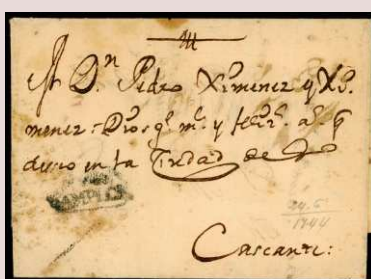 A Dn Pedro Ximenez y Xi
menez Dios gе ms y felizs as q
deseo en la Ciudad de
PAMPLA
24.6
1744
Cascante: